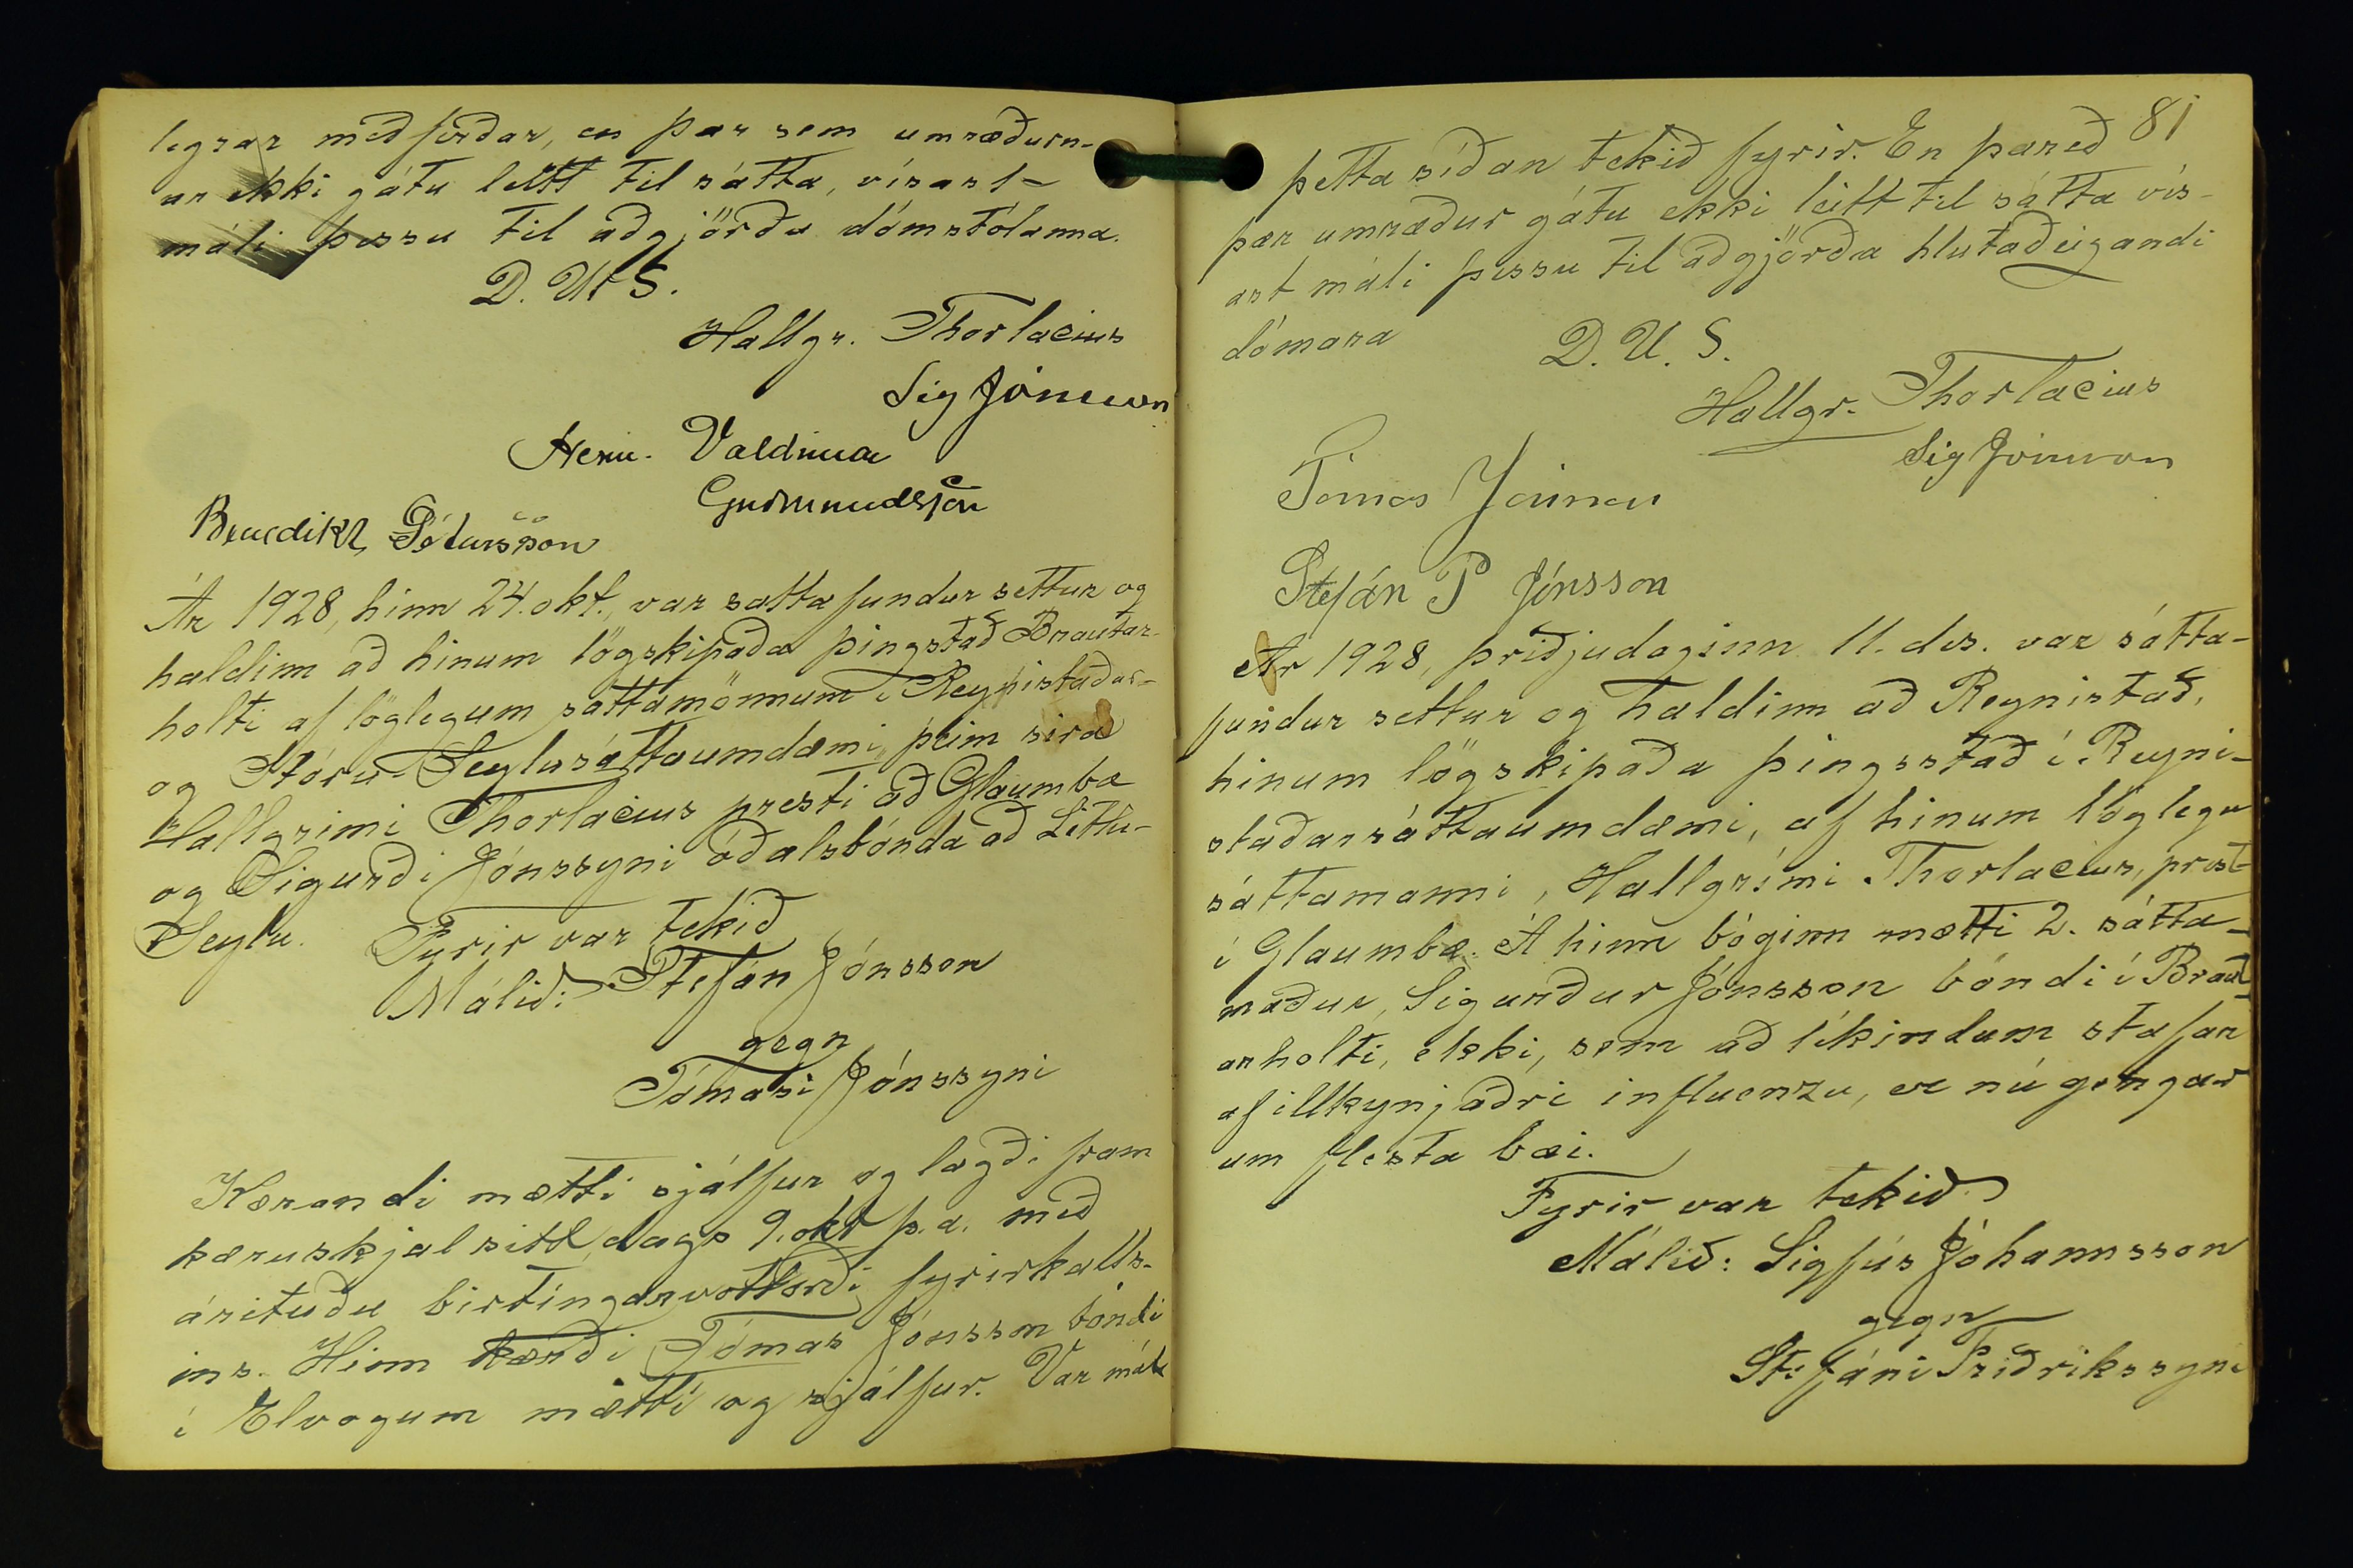 legrar meðferðar, en þar sem umræðurn-
ar ekki gátu leitt til sátta, vísast
máli þessu til aðgjörða dómstólanna.
D. U. S.
Hallgr. Thorlacius
Sig Jónsson
Valdimar
Guðmundsson
Benedikt Pétursson
Ár 1928, hinn 24. okt., var sáttafundur settur og
haldinn að hinum lögskipaða þingstað Brautar-
holti af löglegum sáttamönnum í Reynistaðar-
og Stóru-Seylusáttaumdæmi, þeim síra
Hallgrími Thorlacius presti að Glaumbæ
og Sigurði Jónssyni óðalsbónda að Litlu-
Seylu.
Fyrir var tekið
Málið: Stefán Jónsson
gegn
Tómasi Jónssyni
Kærandi mætti sjálfur og lagði fram
kæruskjal sitt dags 9. okt þ.á. með
árituðu birtingarvottorði fyrirkalls-
ins. Hinn kærði Tómas Jónsson bóndi
í Elvogum mætti og sjálfur. Var mál
81
þetta síðan tekið fyrir. En þareð
þær umræður gátu ekki leitt til sátta vís-
ast máli þessu til aðgjörða hlutaðeigandi
dómara
D. U. S.
Hallgr. Thorlacius
Sig Jónsson
Tómas Jónsson
Stefán P Jónsson
Ár 1928, þriðjudaginn 11. des. var sátta-
fundur settur og haldinn að Reynistað,
hinum lögskipaða þingsstað í Reyni-
staðarsáttaumdæmi, af hinum löglega
sáttamanni, Hallgrími Thorlacius, prest
í Glaumbæ. Á hinn bóginn mætti 2. sátta-
maður, Sigurður Jónsson bóndi í Braut-
arholti, ekki, sem að líkindum stafar
af illkynjaðri influenzu, er nú gengur
um flesta bæi.
Fyrir var tekið
Málið: Sigfús Jóhannsson
gegn
Stefáni Friðrikssyni